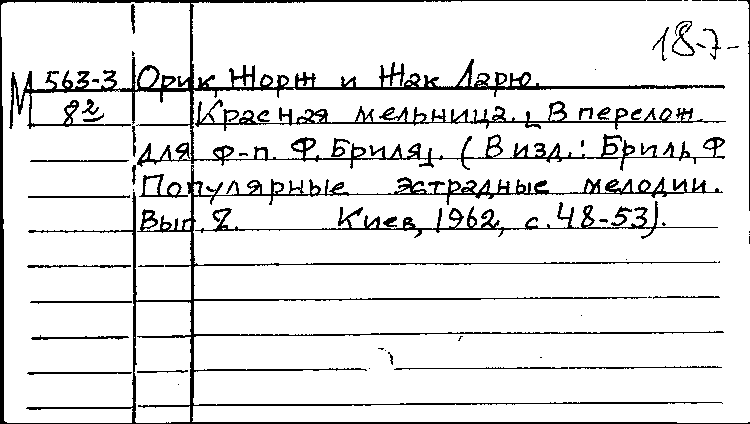 18-7-
М 563-3 Орик, Жорж и Жак Ларю.
8º Красная мельница. [В перелож.
для ф-п. Ф. Бриля]. (В изд.: Бриль, Ф
Популярные эстрадные мелодии.
Вып. 2. Киев, 1962, с. 48-53).